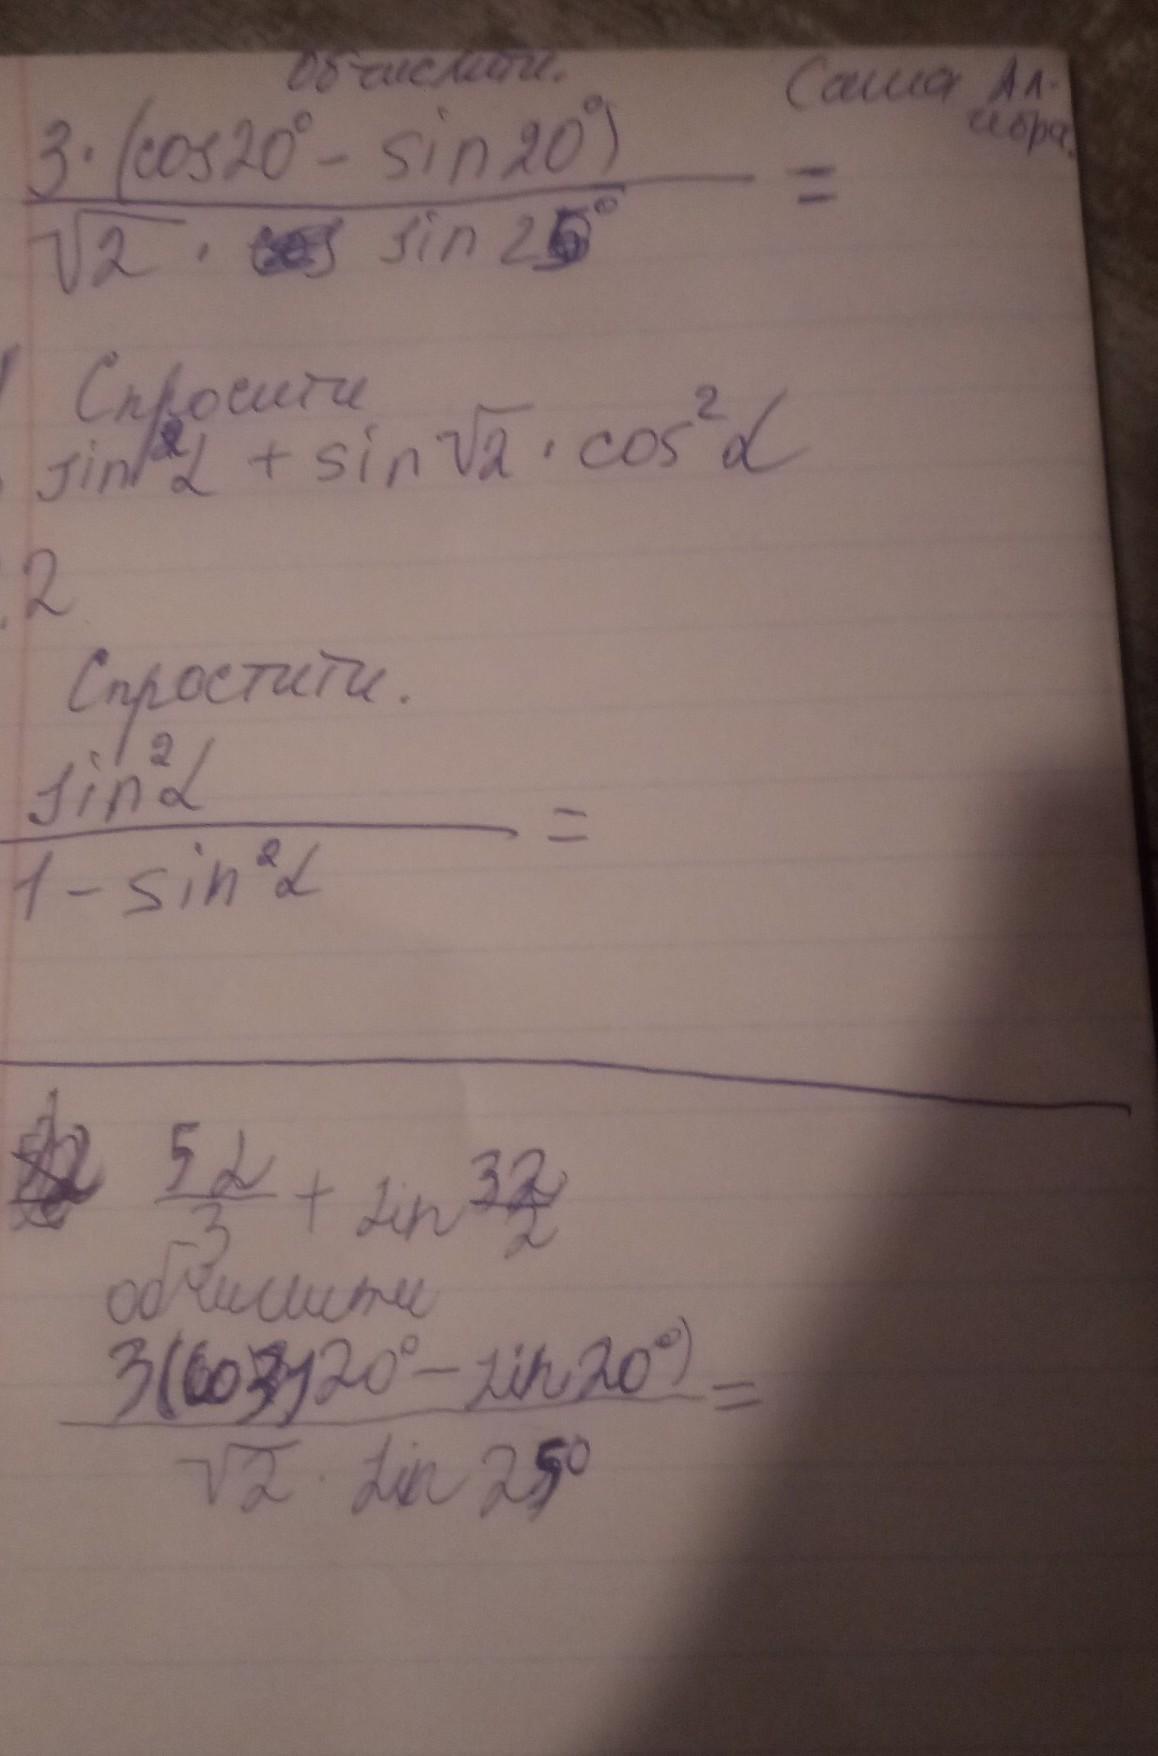 Обчислити. Саша Ал-
гебра.
3·(cos20° - sin20°) =
√2 · sin 25°
Спросити
sin²α + sin√2 · cos²α
.2
Спростити.
sin²α =
1 - sin²α
5α + sin 3α
3 2
обчислити
3(cos20° - sin20°) =
√2 · sin 25°